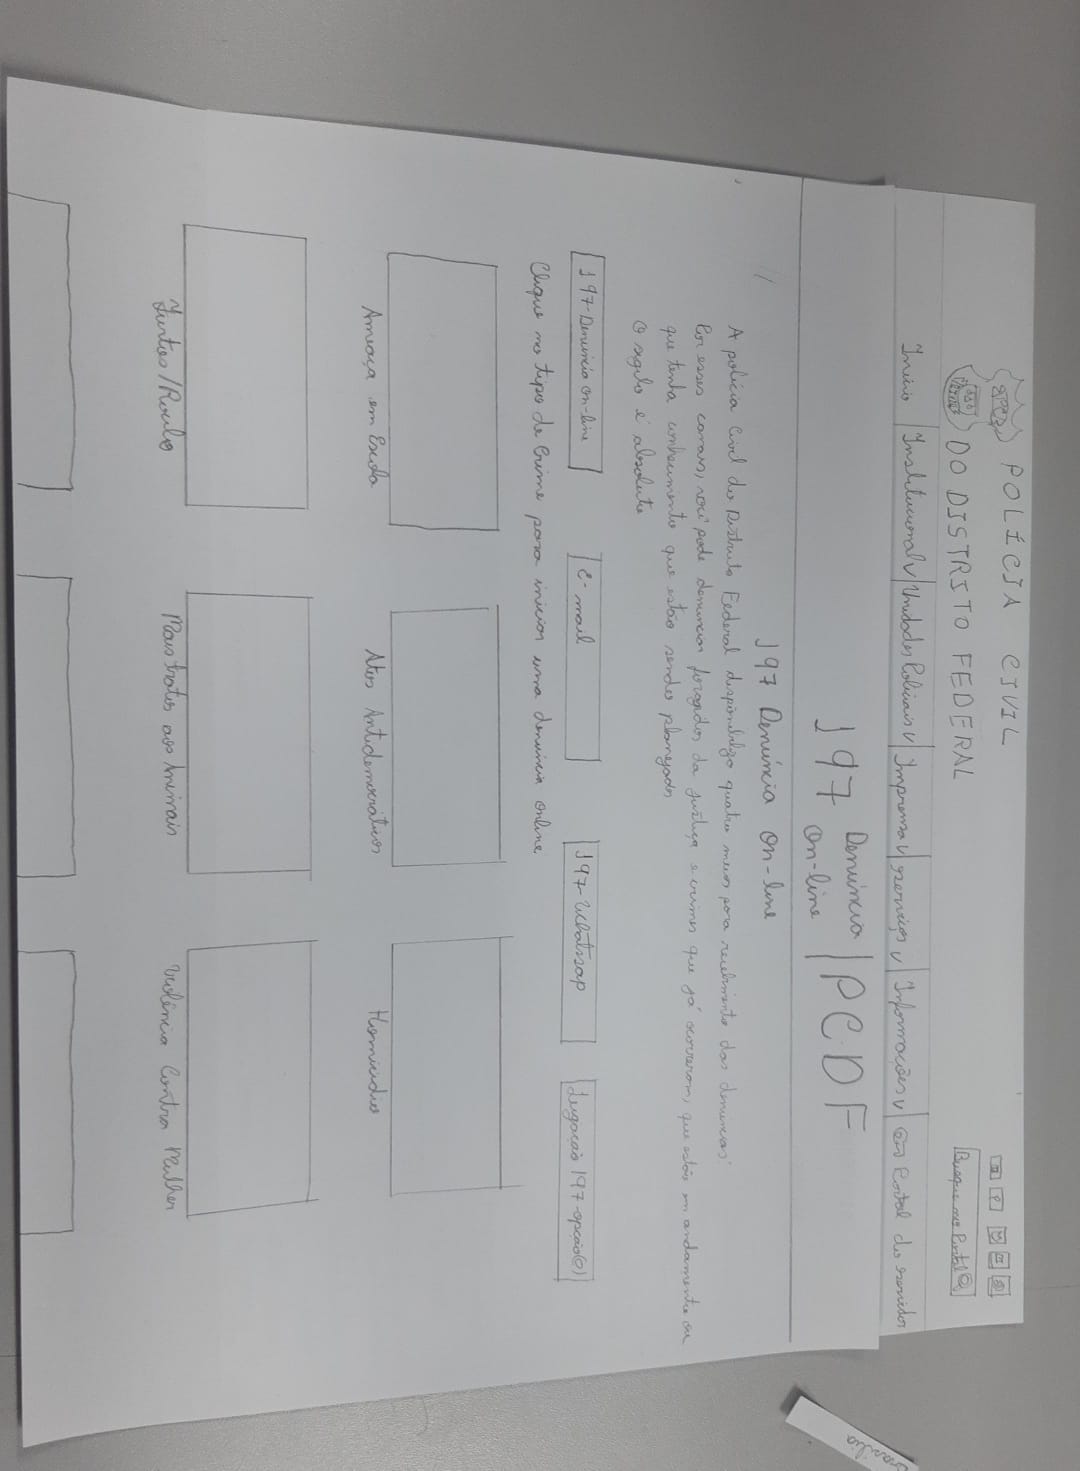 POLÍCIA CIVIL
DO DISTRITO FEDERAL
Busque no Portal
Início
Institucional v
Unidades Policiais v
Imprensa v
serviços v
Informações v
Portal do servidor
197 Denúncia On-line | PCDF
197 Denúncia On-line
A polícia Civil do Distrito Federal disponibiliza quatro meios para recebimento das denúncias:
Por esses canais, você pode denunciar foragidos da justiça e crimes que já ocorreram, que estão em andamento ou
que tenha conhecimento que estão sendo planejados
O sigilo é absoluto
197-Denúncia On-line
E-mail
197-Whatssap
Ligação 197-opção(0)
Clique no tipo de Crime para iniciar uma denúncia online
Ameaça em Escola
Atos Antidemocráticos
Homicídio
Furtos/Roubo
Maus tratos aos Animais
Violência Contra Mulher